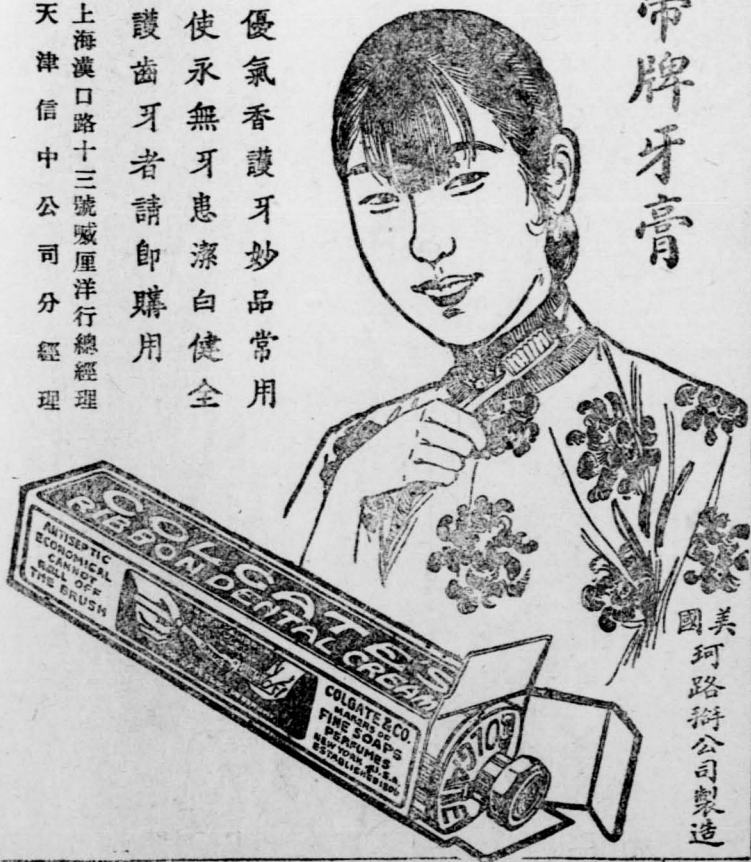 牌牙膏
優氣香護牙妙品常用
使永無牙患潔白健全
護齒牙者請即購用
上海漢口路十三號喴厘洋行總經理
天津信中公司分經理
COLGATE'S
RIBBON DENTAL CREAM
ANTISEPTIC
ECONOMICAL
CANNOT
ROLL OFF
THE BRUSH
COLGATE & CO.
MAKERS OF
FINE SOAPS
PERFUMES
NEW YORK U.S.A.
ESTABLISHED 1806
COLGATE
美國
珂路公司製造